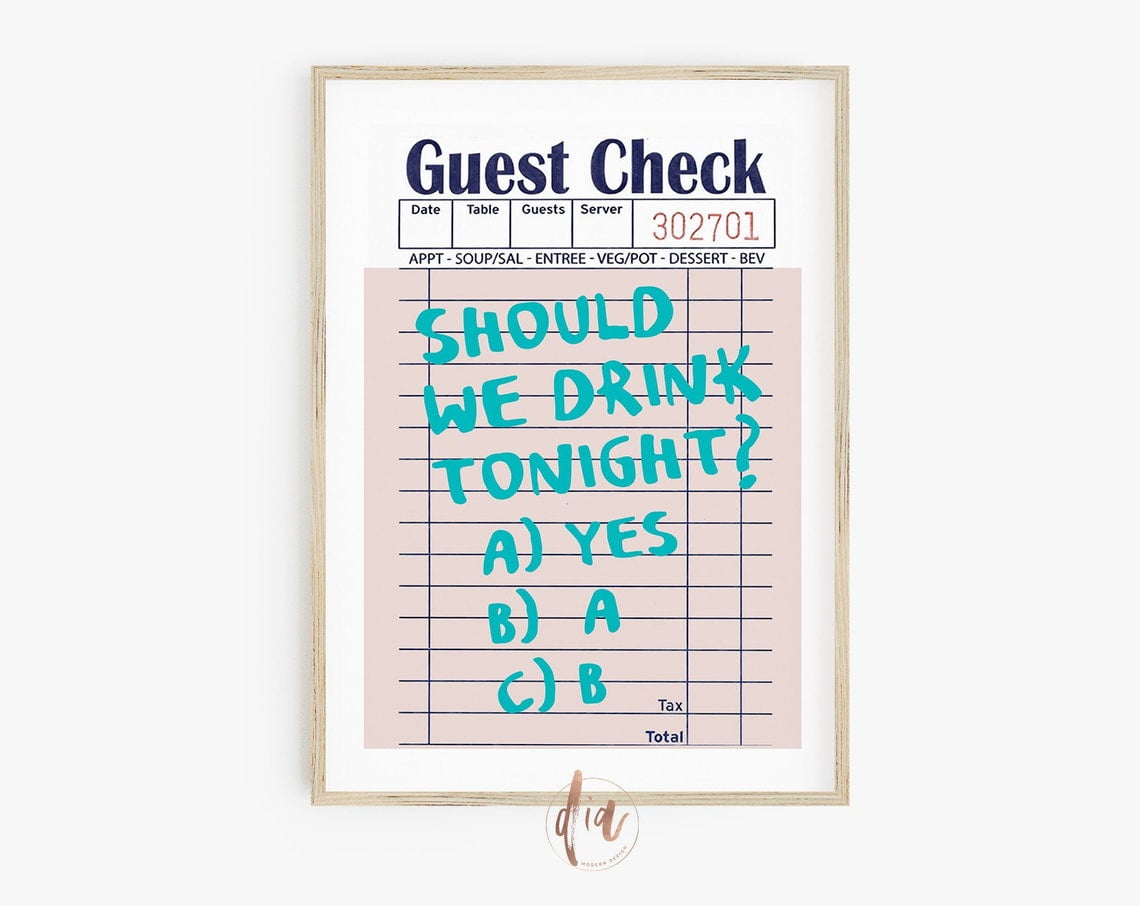 Guest Check
Date Table Guests Server 302701
APPT - SOUP/SAL - ENTREE - VEG/POT - DESSERT - BEV
SHOULD
WE DRINK
TONIGHT?
A) YES
B) A
C) B
Tax
Total
dia
MODERN DESIGN